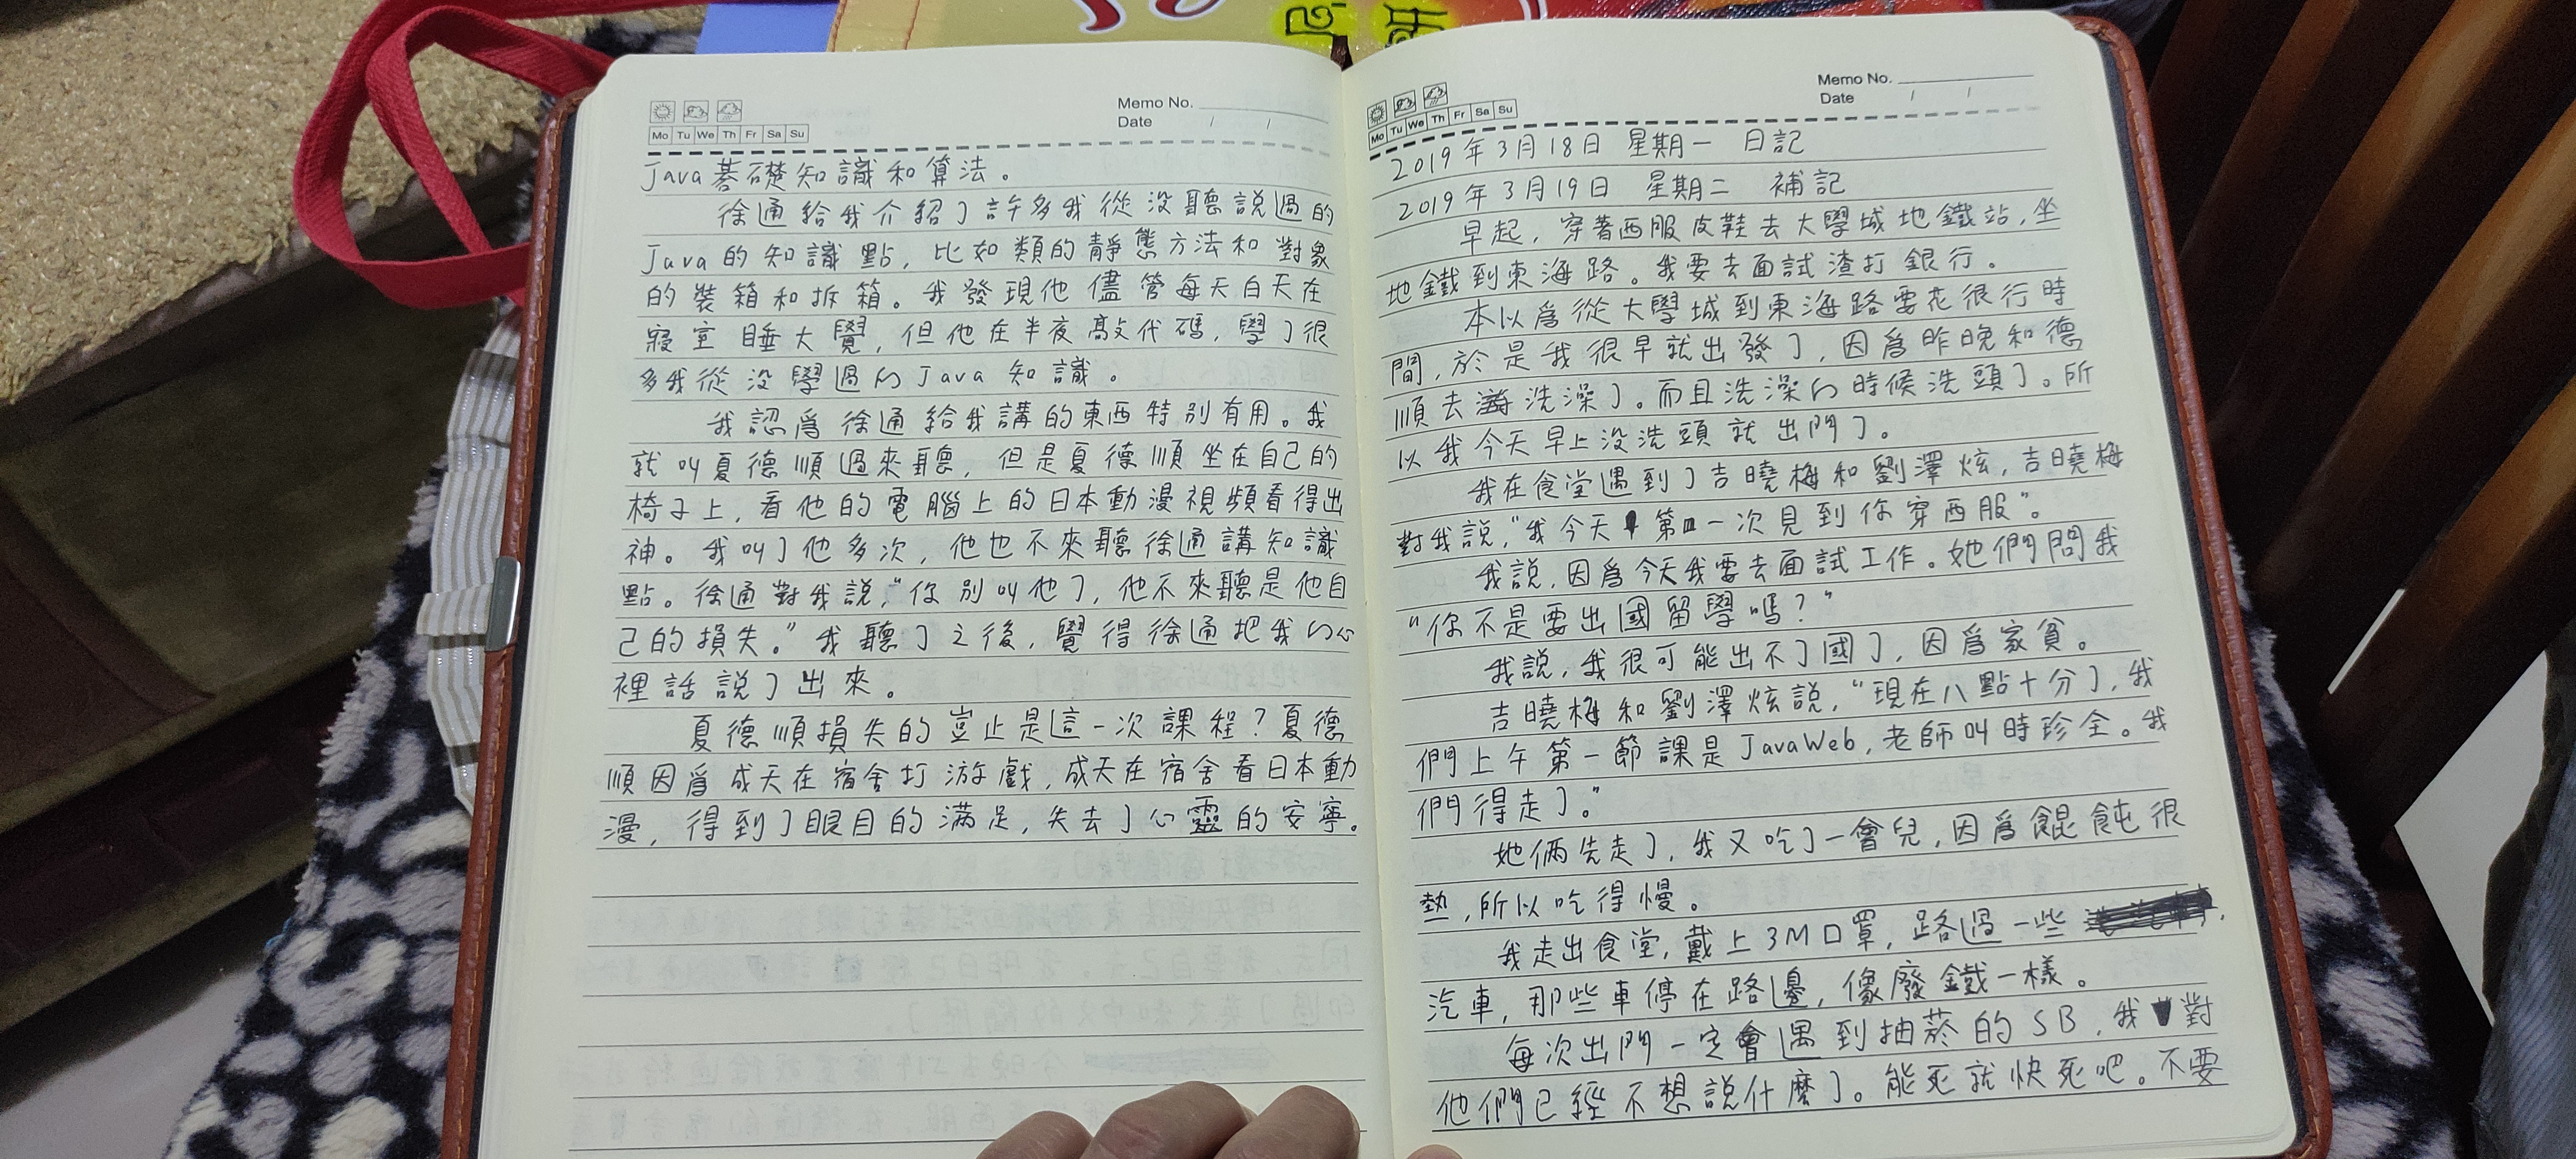 Memo No.
Date / /
Mo Tu We Th Fr Sa Su
Java基礎知識和算法。
徐通給我介紹了許多我從没聽説過的
Java的知識點，比如類的靜態方法和對象
的裝箱和拆箱。我發現他儘管每天白天在
寢室睡大覺，但他在半夜敲代碼，學了很
多我從没學過的Java知識。
我認爲徐通給我講的東西特别有用。我
就叫夏德順過來聽，但是夏德順坐在自己的
椅子上，看他的電腦上的日本動漫視頻看得出
神。我叫了他多次，他也不來聽徐通講知識
點。徐通對我説，“你别叫他了，他不來聽是他自
己的損失。”我聽了之後，覺得徐通把我的心
裡話説了出來。
夏德順損失的豈止是這一次課程？夏德
順因爲成天在宿舍打游戲，成天在宿舍看日本動
漫，得到了眼目的滿足，失去了心靈的安寧。
Memo No.
Date / /
Mo Tu We Th Fr Sa Su
2019年3月18日 星期一 日記
2019年3月19日 星期二 補記
早起，穿著西服皮鞋去大學城地鐵站，坐
地鐵到東海路。我要去面試渣打銀行。
本以爲從大學城到東海路要花很行時
間，於是我很早就出發了，因爲昨晚和德
順去洗澡了。而且洗澡的時候洗頭了。所
以我今天早上没洗頭就出門了。
我在食堂遇到了吉曉梅和劉澤炫，吉曉梅
對我説，“我今天第一次見到你穿西服”。
我説，因爲今天我要去面試工作。她們問我
“你不是要出國留學嗎？”
我説，我很可能出不了國了，因爲家貧。
吉曉梅和劉澤炫説，“現在八點十分了，我
們上午第一節課是JavaWeb，老師叫時珍全。我
們得走了。”
她倆先走了，我又吃了一會兒，因爲餛飩很
熱，所以吃得慢。
我走出食堂，戴上3M口罩，路過一些
汽車，那些車停在路邊，像廢鐵一樣。
每次出門一定會遇到抽菸的SB，我對
他們已經不想説什麼了。能死就快死吧。不要